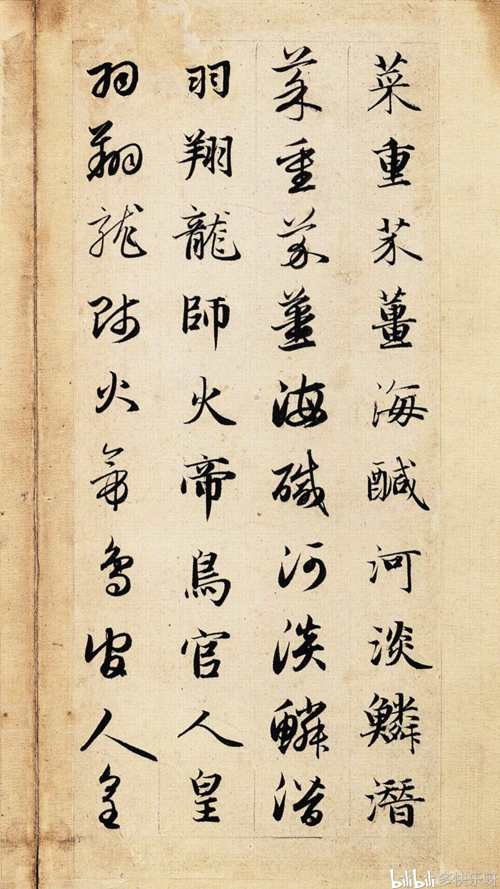 菜重芥薑海醎河淡鱗潛
菜重芥薑海醎河淡鱗潛
羽翔龍師火帝鳥官人皇
羽翔龍師火帝鳥官人皇
bilibili @多快乐呀